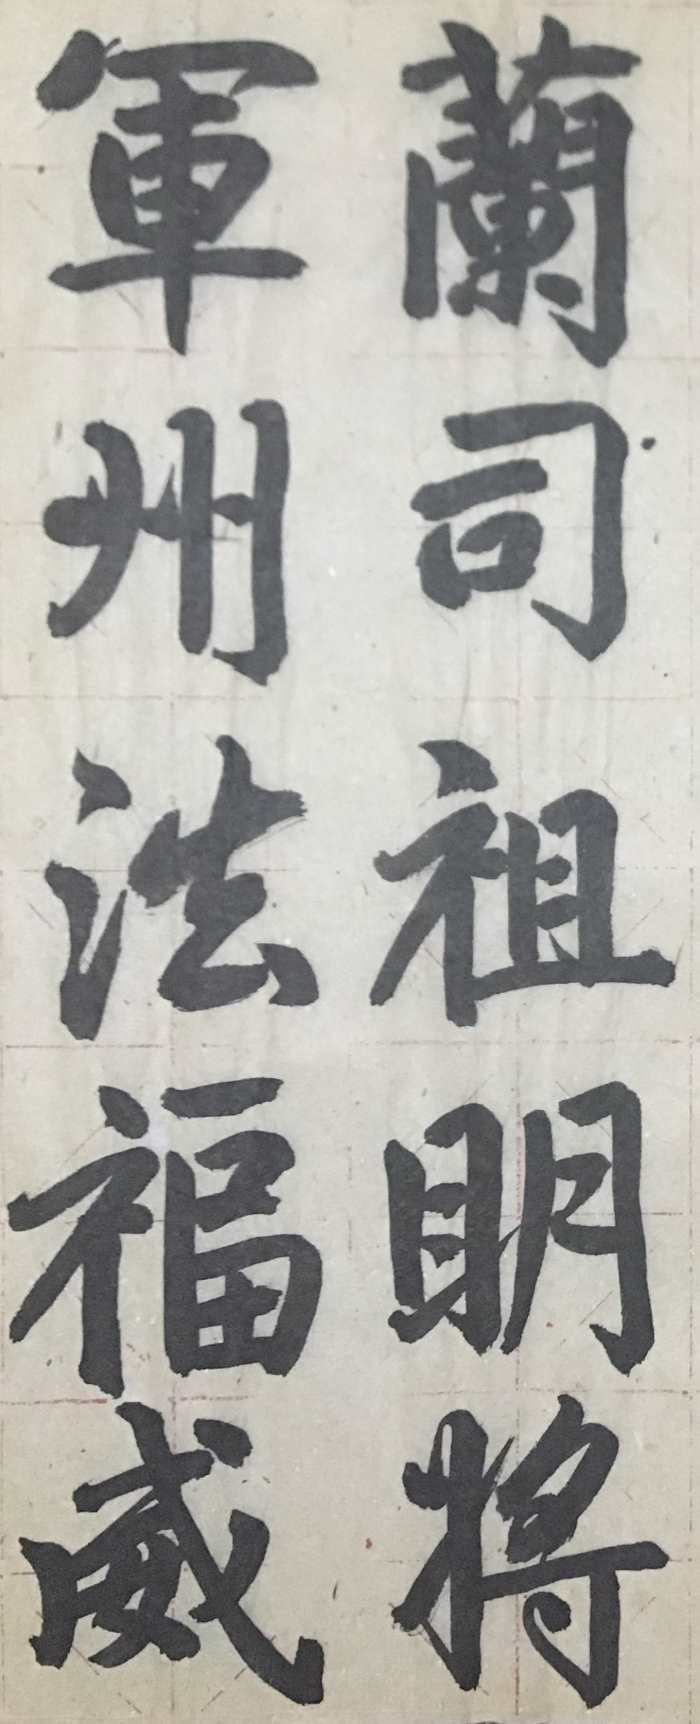 蘭司祖明将
軍州法福威